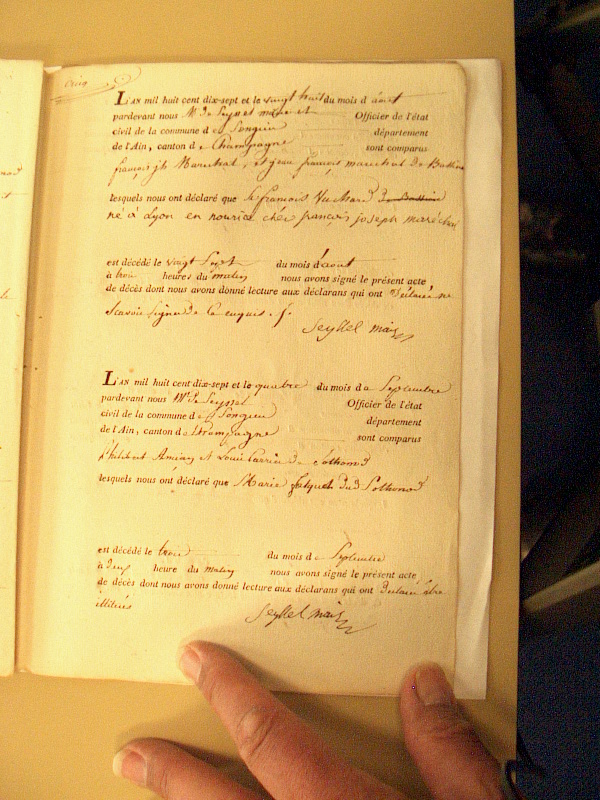 cinq
L'AN mil huit cent dix-sept et le vingt huit du mois d'août
pardevant nous Mr de Seyssel maire et Officier de l'état
civil de la commune de Songieu département
de l'Ain, canton de Champagne sont comparus
françois jh Marechal, et jean françois marechal de Bassieu
lesquels nous ont déclaré que françois de Bassieu
né à Lyon en nourice chéz françois joseph maréchal
est décédé le vingt Sept du mois d'août
à trois heures du matin nous avons signé le présent acte
de décès dont nous avons donné lecture aux déclarans qui ont Déclaré ne
Scavoir Signer de ce enquis. /.
Seyssel maire
L'AN mil huit cent dix-sept et le quatre du mois de Septembre
pardevant nous Mr de Seyssel Officier de l'état
civil de la commune de Songieu département
de l'Ain, canton de Champagne sont comparus
et Louis Carrier de Sothonod
lesquels nous ont déclaré que Marie dud Sothonod
est décédé le trois du mois de Septembre
à deux heure du matin nous avons signé le présent acte
de décès dont nous avons donné lecture aux déclarans qui ont Déclaré être
illitérés
Seyssel maire